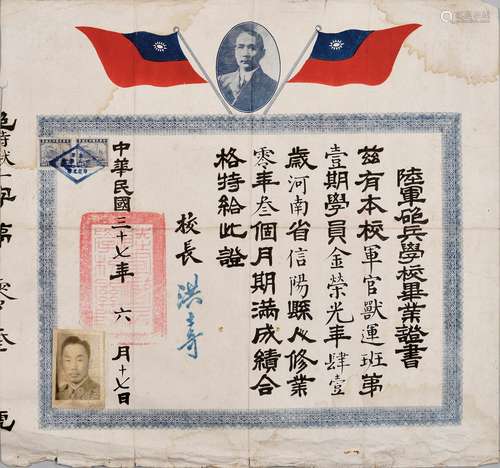 陸軍砲兵學校畢業證書
茲有本校軍官獸運班第
壹期學員金榮光年肆壹
歲河南省信陽縣人修業
零年叁個月期滿成績合
格特給此證
校長 洪士奇
中華民國三十七年六月十七日
字第
號